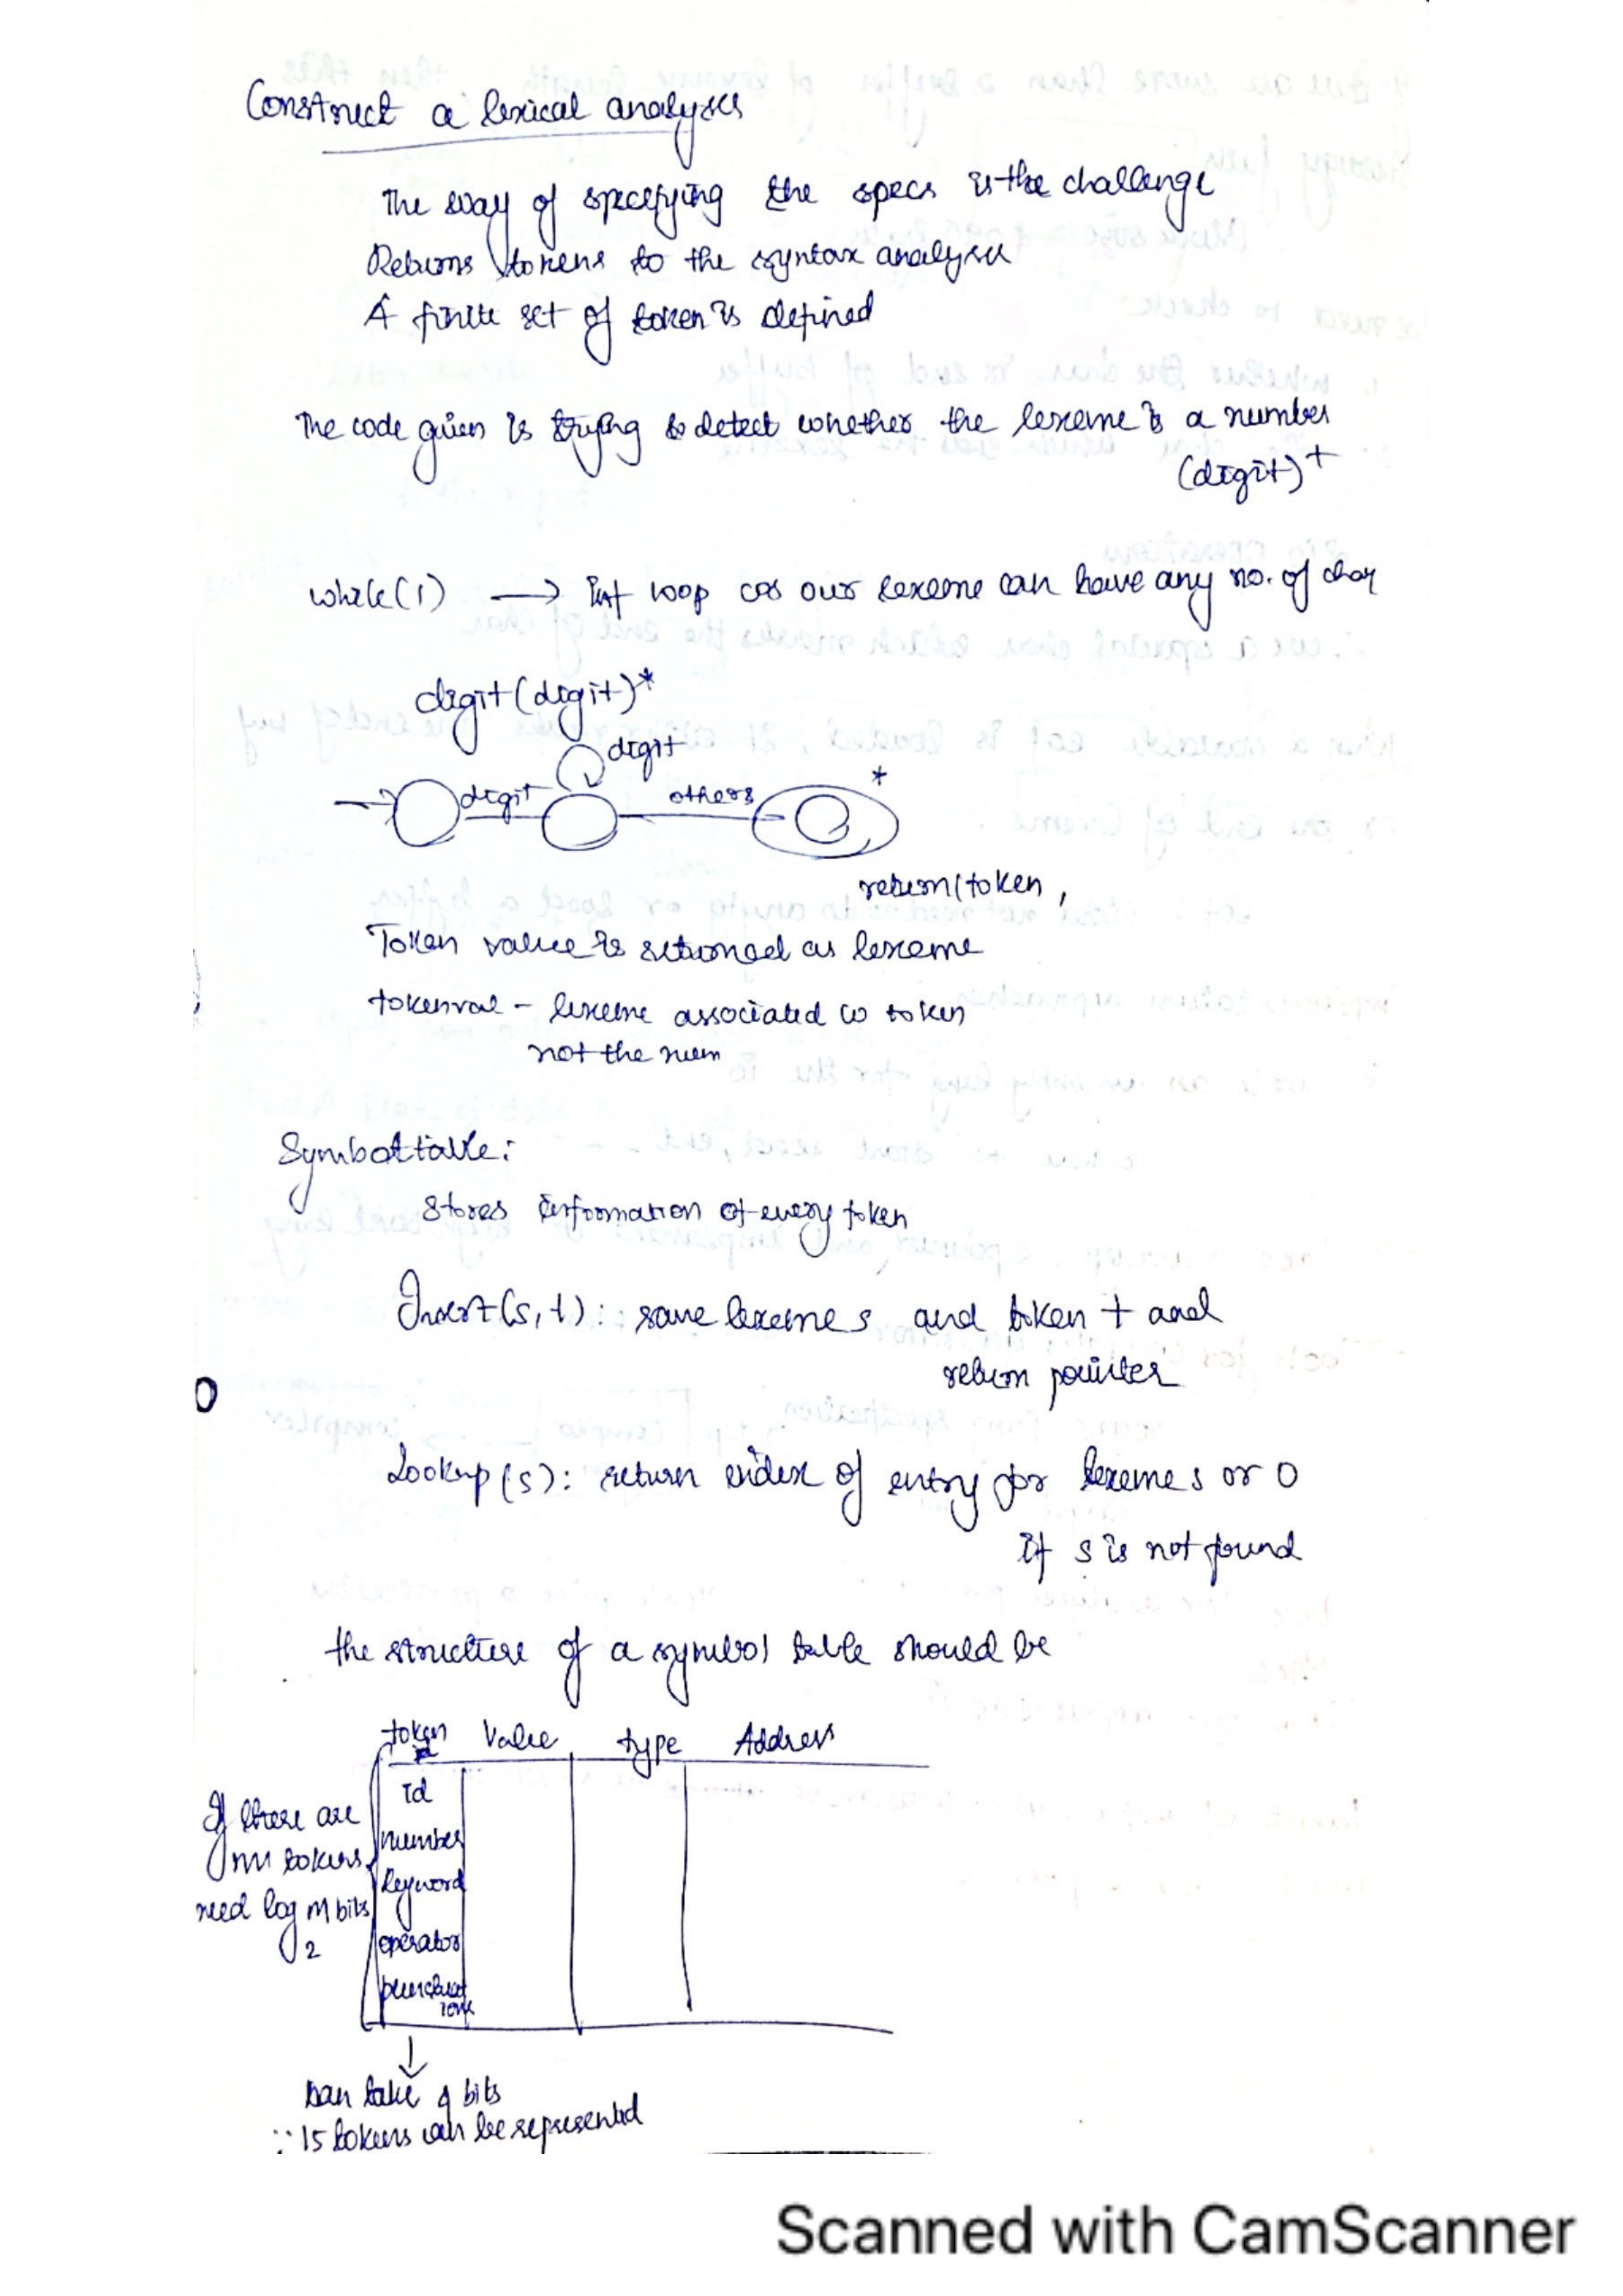 Construct a lexical analyser
The way of specifying the specs is the challenge
Returns tokens to the syntax analyser
A finite set of token is defined
The code given is trying to detect whether the lexeme is a number
(digit)+
while(1) → Inf loop cos our lexeme can have any no. of char
digit(digit)*
digit
digit others *
return(token,
Token value is returned as lexeme
tokenval - lexeme associated w token
not the num
Symbol table:
Stores information of every token
Insert(s,t): save lexeme s and token t and
return pointer
Lookup(s): return index of entry for lexeme s or 0
if s is not found
the structure of a symbol table should be
token Value type Address
id
number
keyword
operator
punctuat
ions
If there are
m tokens
need log m bits
2
↓
can take 4 bits
∵ 15 tokens can be represented
Scanned with CamScanner